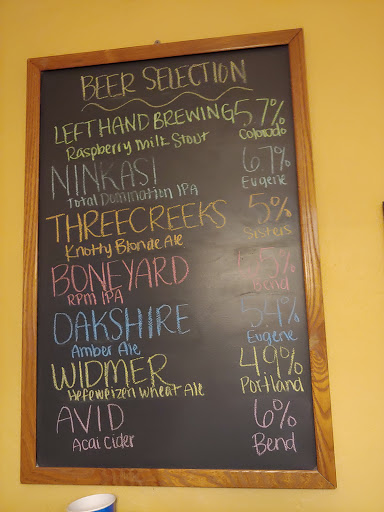 BEER SELECTION
LEFT HAND BREWING 57%
Raspberry Milk Stout Colorado
NINKASI 67%
Total Domination IPA Eugene
THREECREEKS 5%
Knotty Blonde Ale Sisters
BONEYARD 65%
RPM IPA Bend
OAKSHIRE 54%
Amber Ale Eugene
WIDMER 49%
Hefeweizen Wheat Ale Portland
AVID 6%
Acai Cider Bend